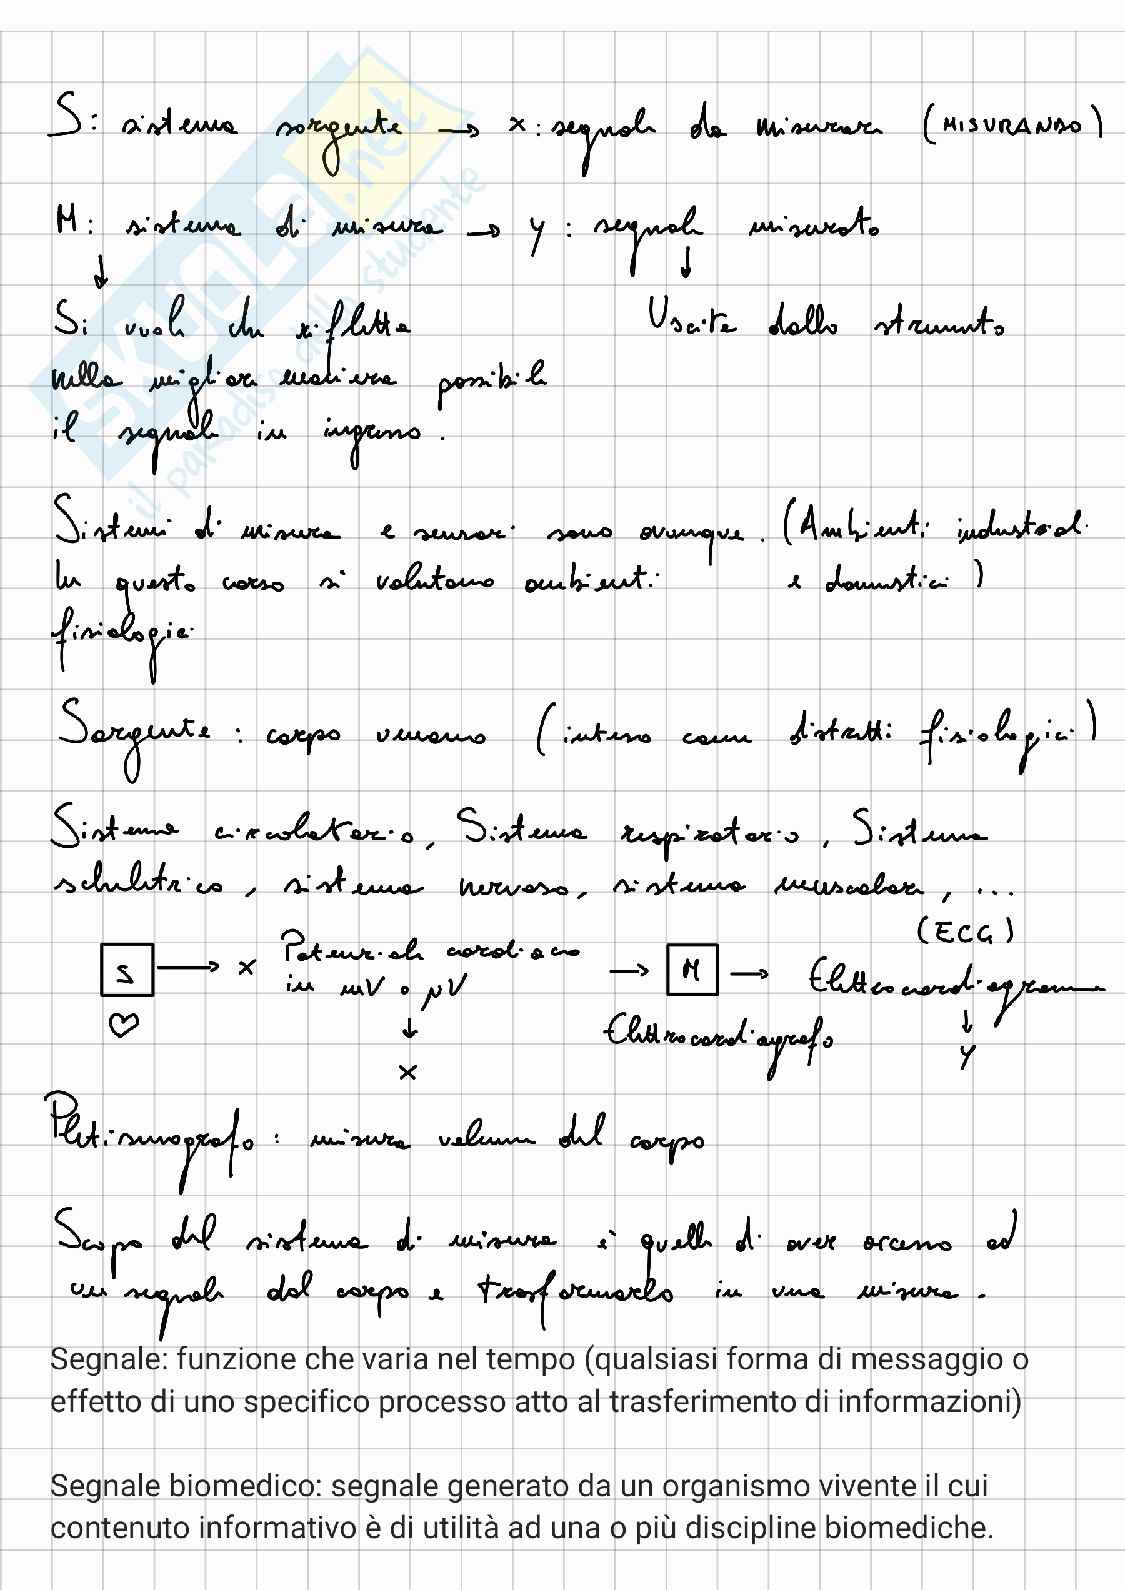 S: sistema sorgente → x: segnale da misurare (MISURANDO)
M: sistema di misura → y: segnale misurato
↓ ↓
Si vuole che rifletta Uscita dello strumento
nella migliore maniera possibile
il segnale in ingresso.
Sistemi di misura e sensori sono ovunque. (Ambienti industriali
In questo corso si valutano ambienti e domestici)
fisiologici
Sorgente: corpo umano (inteso come distretti fisiologici)
Sistema circolatorio, Sistema respiratorio, Sistema
scheletrico, sistema nervoso, sistema muscolare, ...
(ECG)
S → x Potenziale cardiaco → M → Elettrocardiogramma
in mV o μV
♡ ↓ Elettrocardiografo ↓
x y
Pletismografo: misura volume del corpo
Scopo del sistema di misura è quello di aver accesso ad
un segnale dal corpo e trasformarlo in una misura.
Segnale: funzione che varia nel tempo (qualsiasi forma di messaggio o
effetto di uno specifico processo atto al trasferimento di informazioni)
Segnale biomedico: segnale generato da un organismo vivente il cui
contenuto informativo è di utilità ad una o più discipline biomediche.
SKUOLA.net
il paradiso dello studente